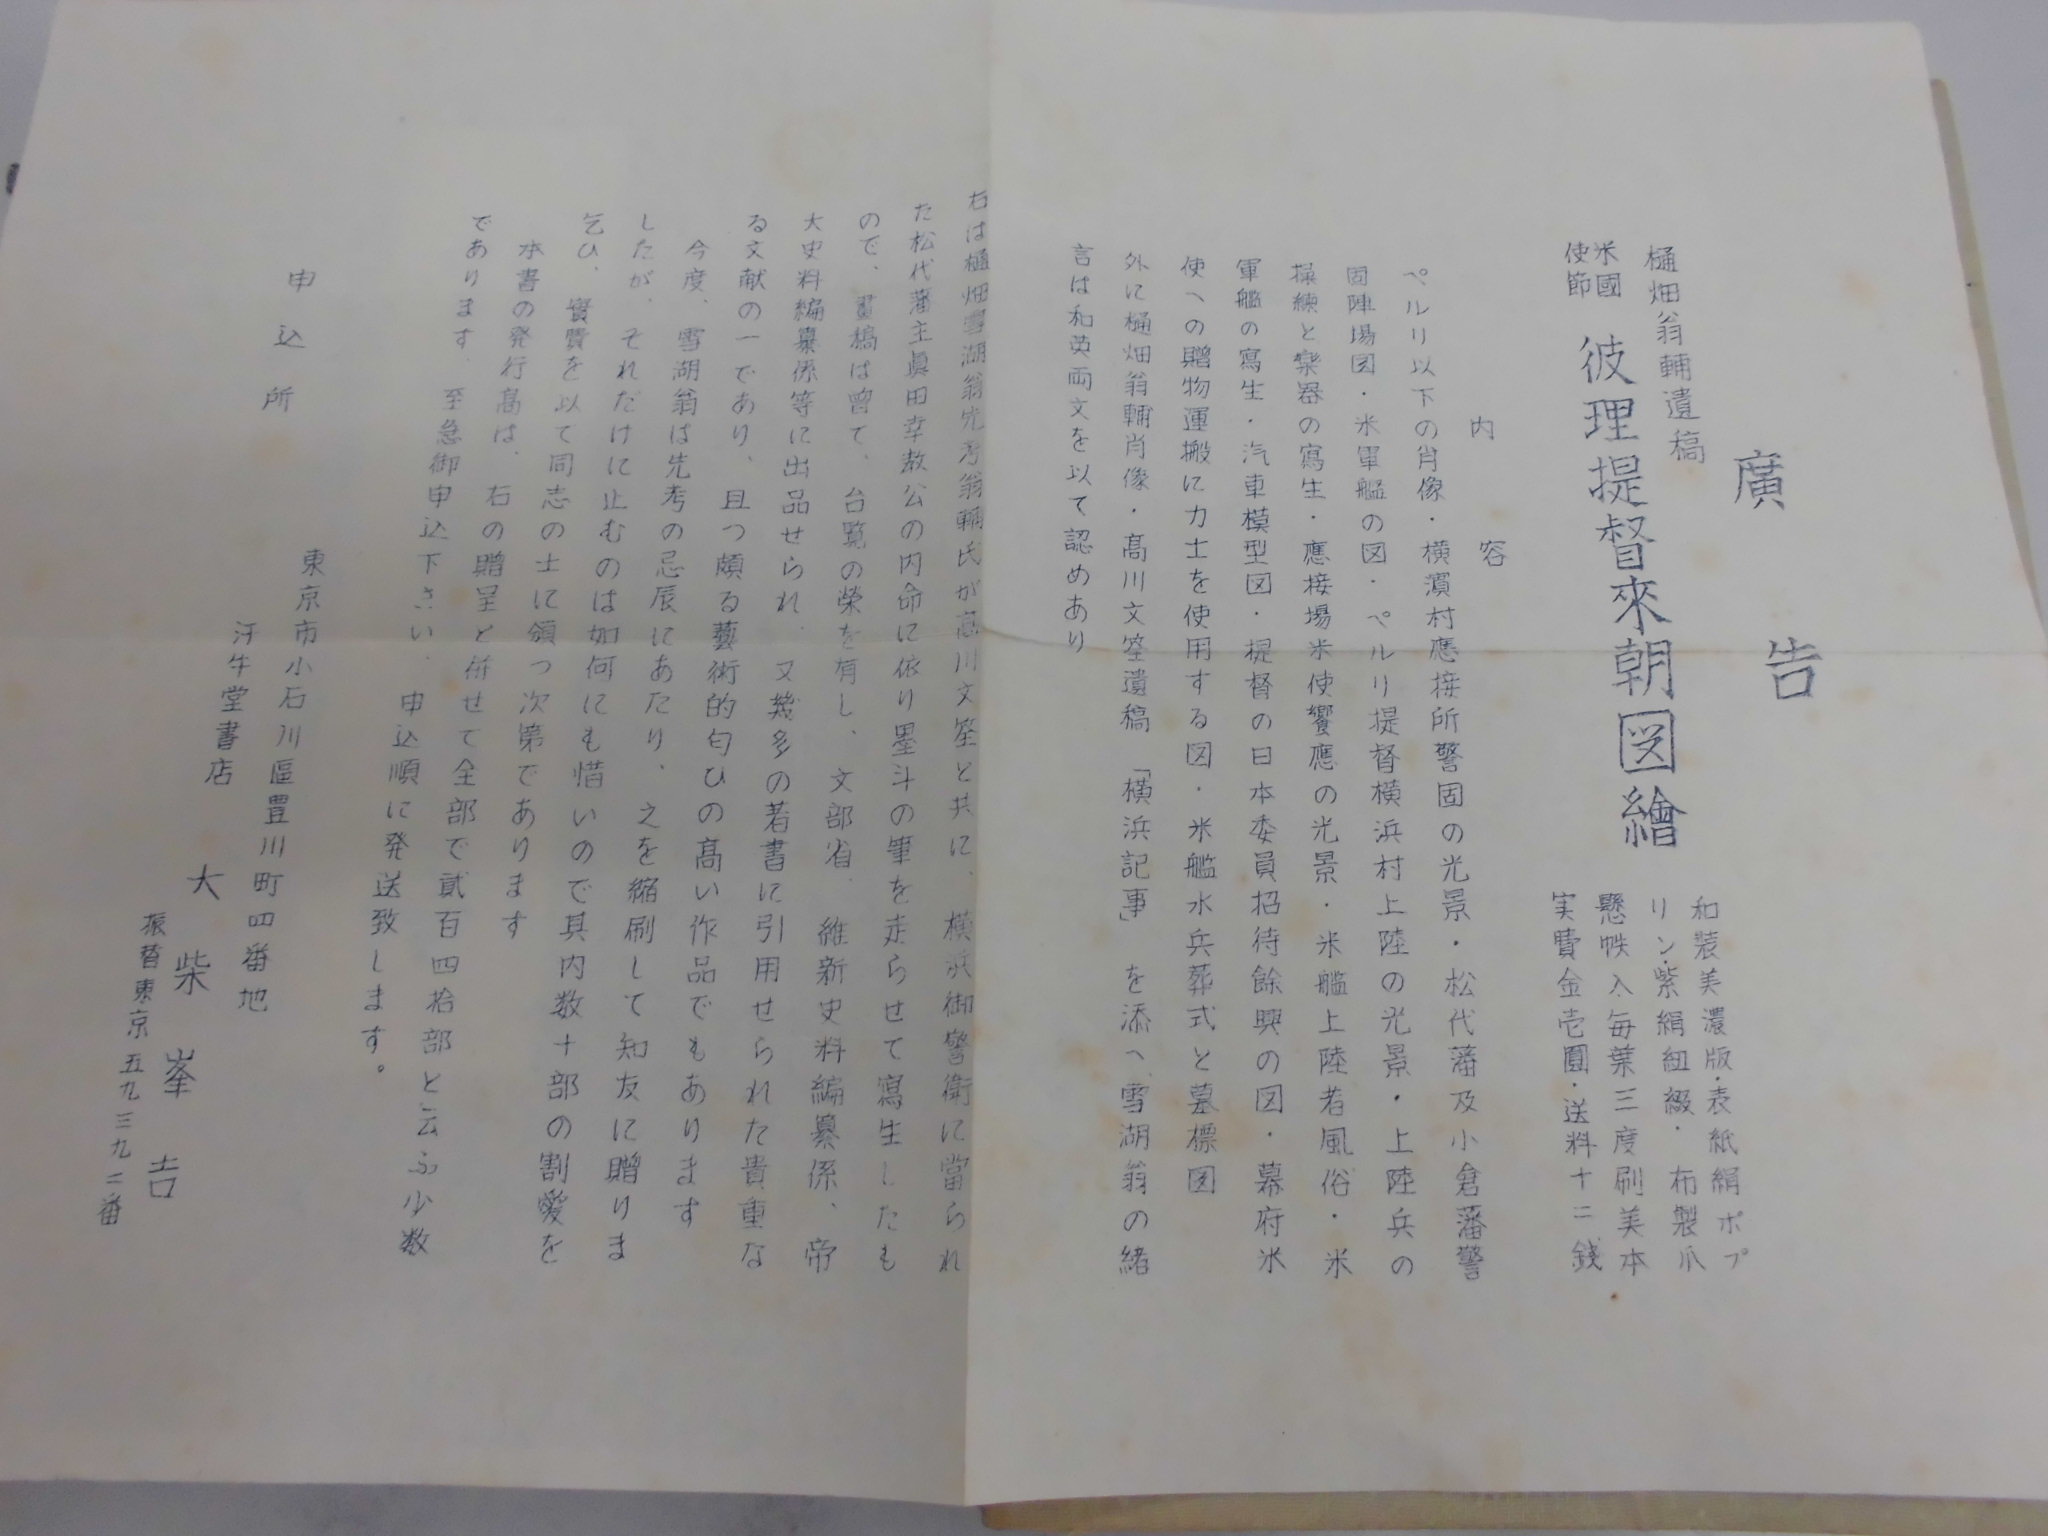 廣告
樋畑翁輔遺稿
米國使節 彼理提督來朝図繪
和裝美濃版・表紙絹ポプ
リン・紫絹紐綴・布製爪
懸帙入毎葉三度刷美本
実費金壱圓・送料十二錢
内容
ペルリ以下の肖像・横濱村應接所警固の光景・松代藩及小倉藩警
固陣場図・米軍艦の図・ペルリ提督横浜村上陸の光景・上陸兵の
操練と樂器の寫生・應接場米使饗應の光景・米艦上陸者風俗・米
軍艦の寫生・汽車模型図・提督の日本委員招待餘興の図・幕府米
使への贈物運搬に力士を使用する図・米艦水兵葬式と墓標図
外に樋畑翁輔肖像・髙川文筌遺稿「横浜記事」を添へ、雪湖翁の緒
言は和英両文を以て認めあり
右は樋畑雪湖翁先考翁輔氏が髙川文筌と共に、横浜御警衛に當られ
た松代藩主眞田幸教公の内命に依り墨斗の筆を走らせて寫生したも
ので、畫稿は曽て、台覧の榮を有し、文部省、維新史料編纂係、帝
大史料編纂係等に出品せられ、又幾多の著書に引用せられた貴重な
る文献の一であり、且つ頗る藝術的匂ひの髙い作品でもあります
今度、雪湖翁は先考の忌辰にあたり、之を縮刷して知友に贈りま
したが、それだけに止むのは如何にも惜いので其内数十部の割愛を
乞ひ、實費を以て同志の士に頒つ次第であります
本書の発行髙は、右の贈呈と併せて全部で貳百四拾部と云ふ少数
であります、至急御申込下さい、申込順に発送致します。
申込所
東京市小石川區豊川町四番地
汗牛堂書店
大柴峯吉
振替東京五九三九二番